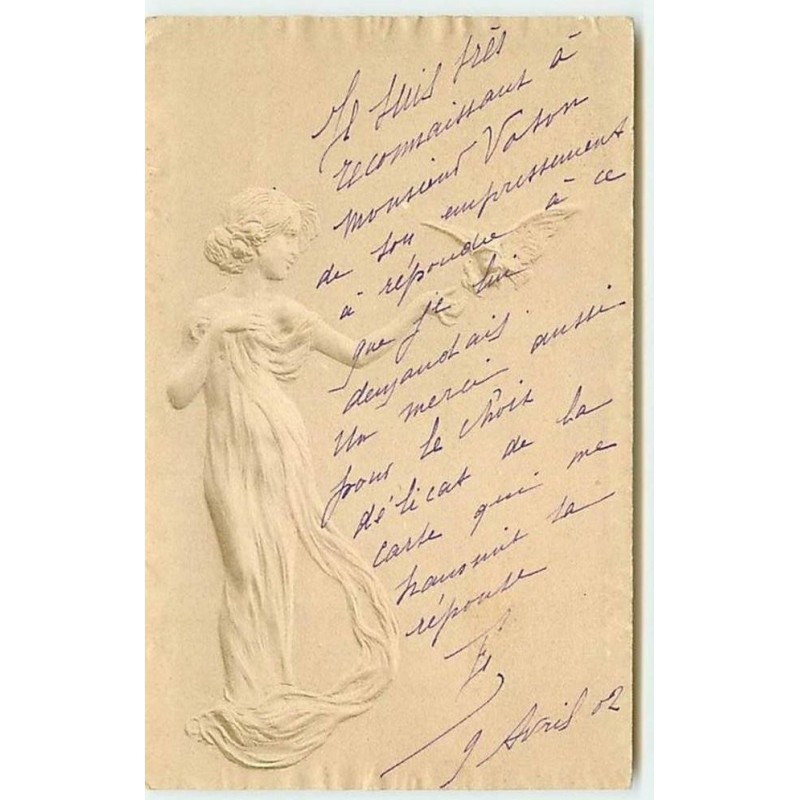 Je suis très
reconnaissant à
Monsieur Vaton
de son empressement
à répondre à ce
que je lui
demandais.
Un merci aussi
pour le choix
délicat de la
carte qui me
transmit sa
réponse
9 Avril 02